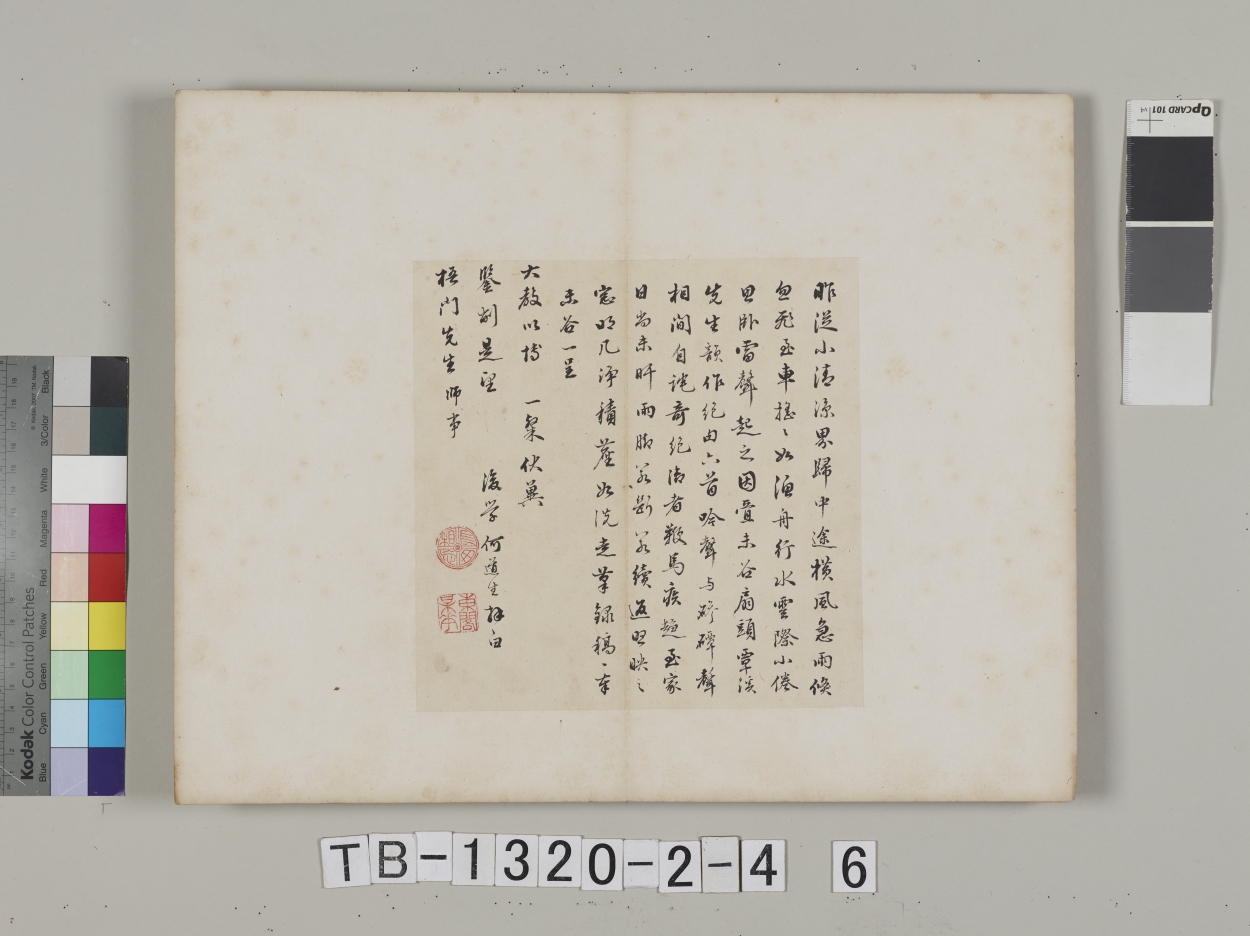 昨從小清涼界歸中途橫風急雨倏
忽飛至車搖〻如漁舟行水雲際小倦
思卧雷聲起之因疊未谷扇頭覃溪
先生韻作絕句六首吟聲与砰磅聲
相間自詫奇絕御者鞭馬疾趨至家
日尚未旰雨脚若斷若續返照映〻
窓明几淨積塵如洗走筆錄稿〻奉
未谷一呈
大教以博 一粲伏冀
鑒削是望 後學何道生拜白
梧門先生師事
Kodak Color Control Patches
© Kodak, 2007 TM: Kodak
Blue Cyan Green Yellow Red Magenta White 3/Color Black
QPCARD 101
TB-1320-2-4 6